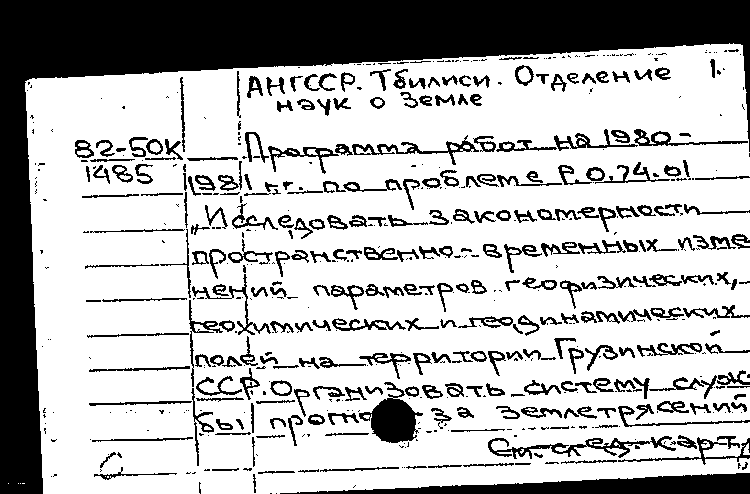 АНГССР. Тбилиси. Отделение 1.
наук о Земле
82-50К Программа работ на 1980-
1485 1981 гг. по проблеме Р.0.74.01
„Исследовать закономерности
пространственно-временных изме
нений параметров геофизических,
геохимических и геодинамических
полей на территории Грузинской
ССР. Организовать систему служ
бы прогноза землетрясений
См. след. карт.
С